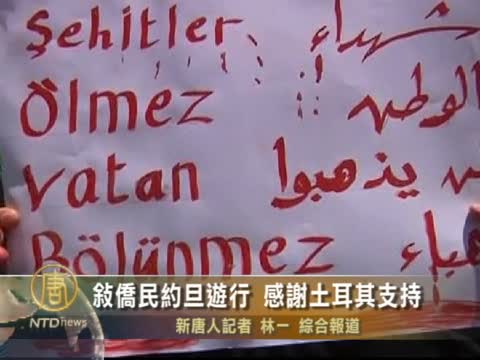 Şehitler شهداء
Ölmez الوطن
vatan يذهبوا
Bölünmez هباء
唐
NTDnews
敘僑民約旦遊行 感謝土耳其支持
新唐人記者 林一 綜合報道